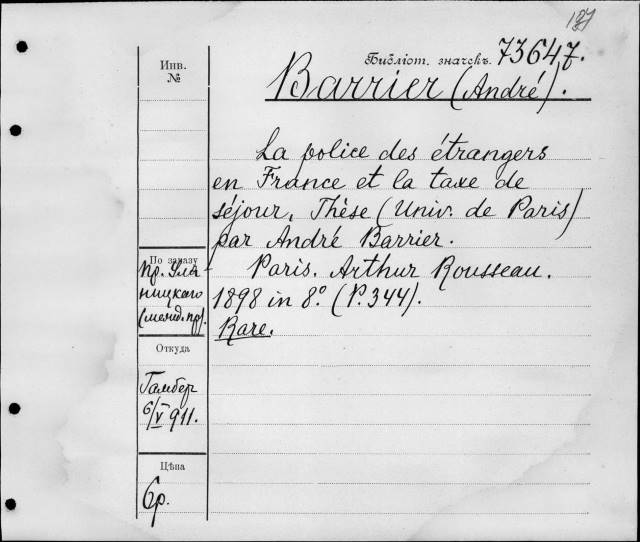 127
Библіот. значекъ. 73647.
Инв.
№
Barrier (André).
La police des étrangers
en France et la taxe de
séjour. Thèse (Univ. de Paris)
par André Barrier.
Paris. Arthur Rousseau.
1898 in 8º (P. 344).
Rare.
По заказу
пр. Уля-
ницкаго
(межд. пр).
Откуда
Гамбер
6/V 911.
Цѣна
6р.